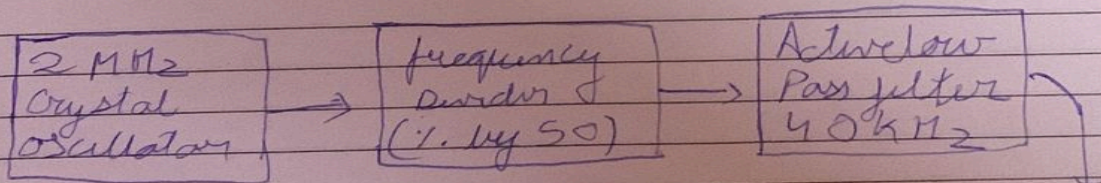 2 MHz
Crystal
Oscillator
frequency
Divider
(÷ by 50)
Active low
Pass filter
40KHz